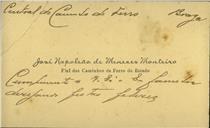 Central do Caminho de Ferro Braga
José Napoleão de Menezes Monteiro
Fiel dos Caminhos de Ferro do Estado
Cumprimenta V. Exª e Família
desejando festas felizes